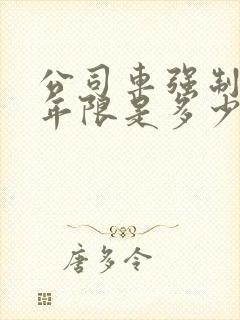 公司车强制
年限是多少
唐多令